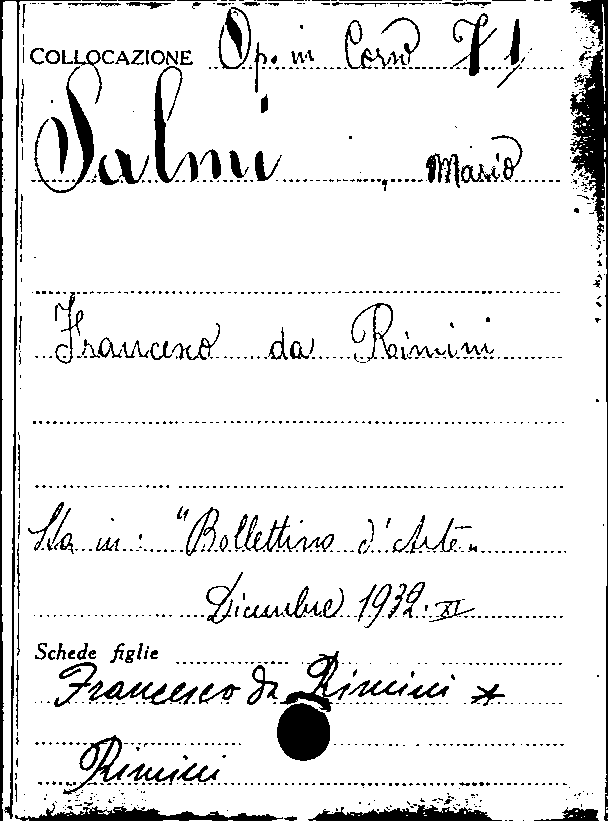 COLLOCAZIONE Op. in Corso 71
Salmi, Mario
Francesco da Rimini
Sta in: "Bollettino d'Arte"
Dicembre 1932·XI
Schede figlie
Francesco da Rimini *
Rimini